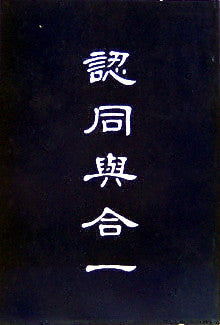 認同與合一